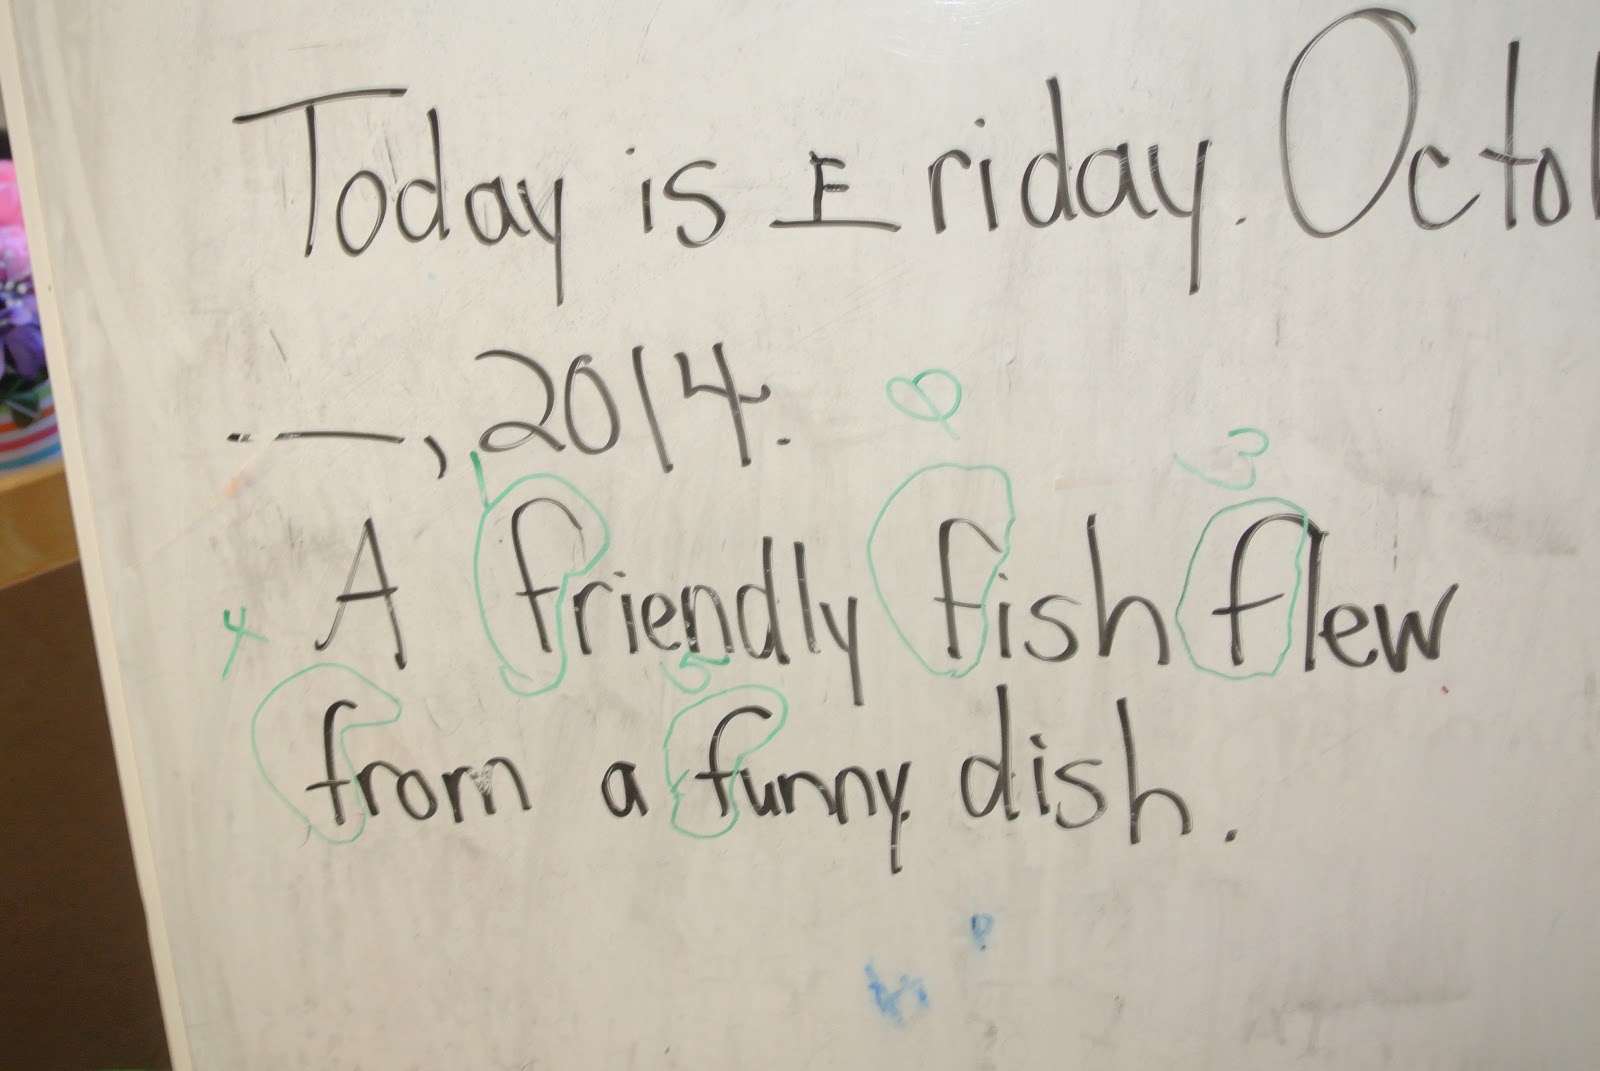 Today is F riday. Octo
__, 2014.
A friendly fish flew
from a funny dish.
1
3
4
5